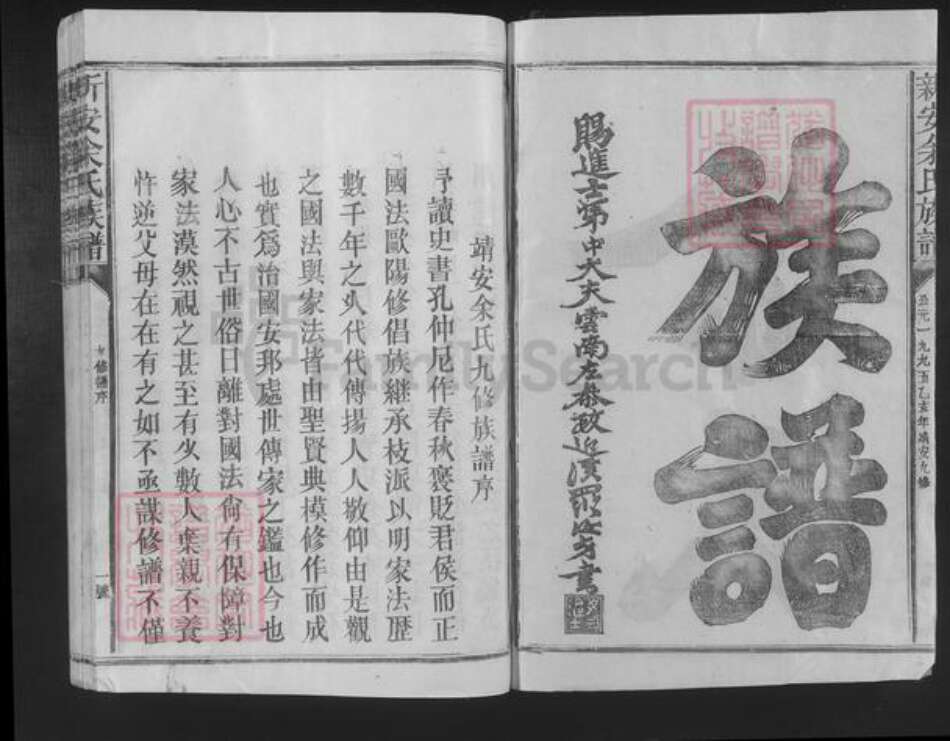 新安余氏族譜
公元一九九五乙亥年靖安九修
族譜
賜進士第中大夫雲南左參政進
書
靖安余氏九修族譜序
予讀史書孔仲尼作春秋褒貶君侯而正
國法歐陽修倡族継承枝派以明家法歴
數千年之久代代傳揚人人敬仰由是觀
之國法與家法皆由聖賢典模修作而成
也實為治國安邦處世傳家之鑑也今也
人心不古世俗日離對國法尙有保障對
家法漠然視之甚至有少數人棄親不養
忤逆父母在在有之如不亟謀修譜不僅
新安余氏族譜
九修譜序
一號
FamilySearch